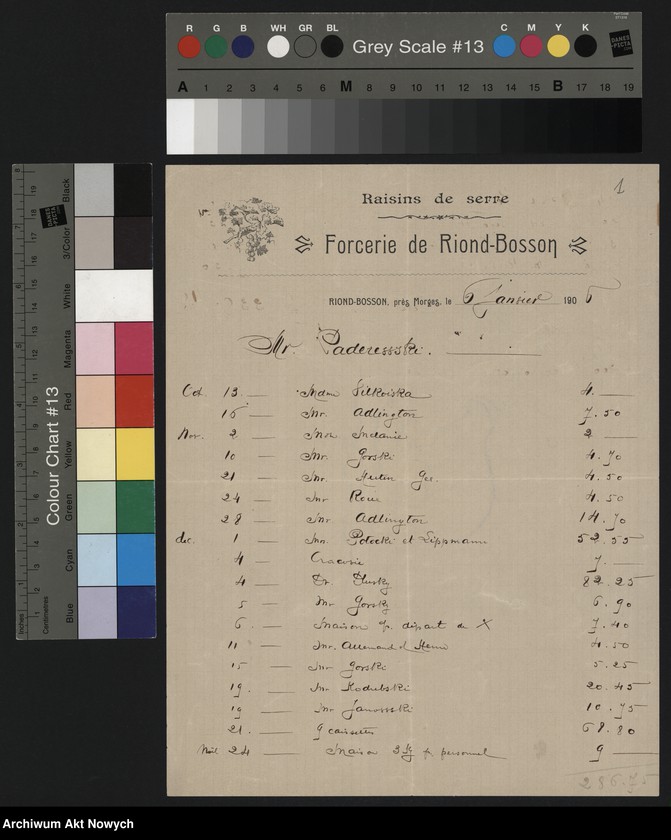 R G B WH GR BL Grey Scale #13 C M Y K
A 1 2 3 4 5 6 M 8 9 10 11 12 13 14 15 B 17 18 19
Colour Chart #13
Blue Cyan Green Yellow Red Magenta White 3/Color Black
Inches Centimetres
1
Raisins de serre
Forcerie de Riond-Bosson
RIOND-BOSSON, près Morges, le 6 Janvier 1906
Mr. Paderewski.
Oct. 13. — Mdme 4. —
16 — Mr. Adlington 7.50
Nov. 2 — Melanie 2 —
10 — Mr. Gorski 4.70
21 — Mr. 4.50
24 — Mr 4.50
28 — Mr Adlington 14.70
dec. 1 — Mr. Potocki et Lippmann 52.55
4 — Cracovie 7. —
4 — Dr. Dlusky 82.25
5 — Mr Gorsky 6.90
6. — Maison p. départ de X 7.40
11 — Mr. 4.50
15 — Mr Gorski 5.25
19. — Mr Kodubski 20.45
19 — Mr Janowski 10.75
21. — 9 caissettes 68.80
24 — Maison 3 p. personnel 9 —
286.75
Archiwum Akt Nowych